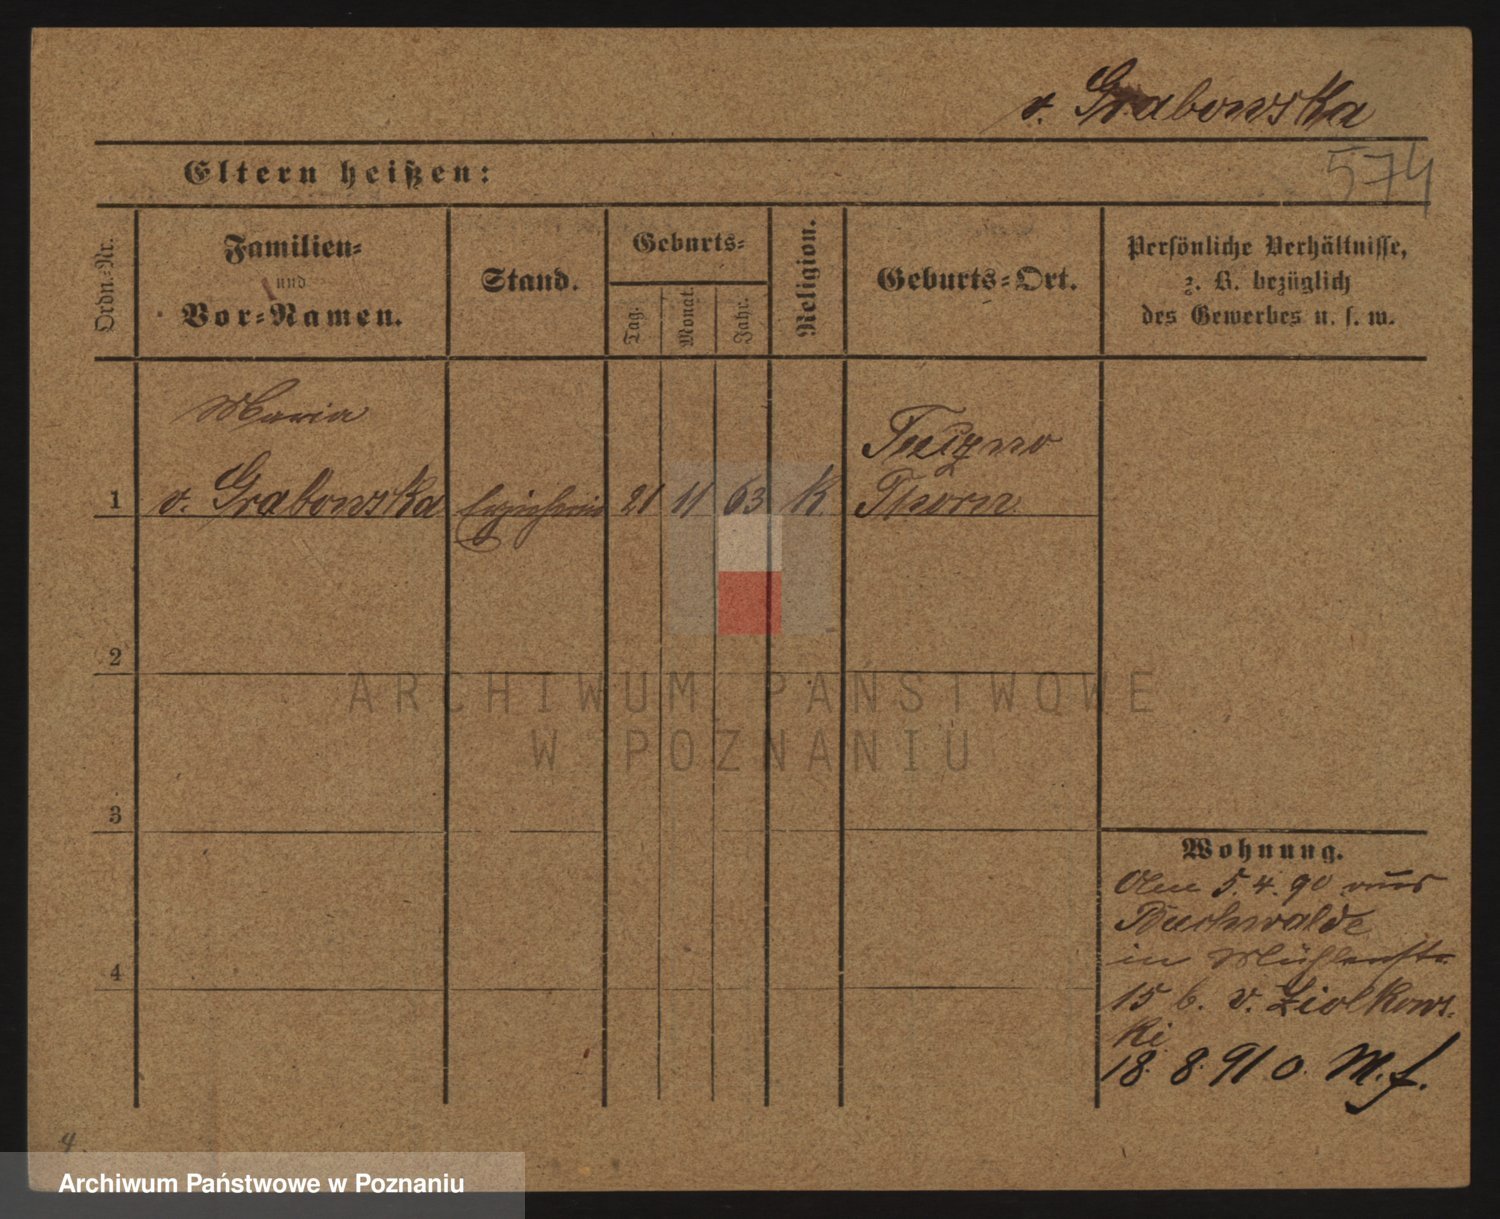 v. Grabowska
574
Eltern heißen:
Ordn.-Nr.
Familien-
und
Vor-Namen.
Stand.
Geburts-
Tag.
Monat.
Jahr.
Religion.
Geburts-Ort.
Persönliche Verhältnisse,
z. B. bezüglich
des Gewerbes u. s. w.
Maria
1 v. Grabowska Erzieherin 21 11 63 K Thorn
2
3
4
Wohnung.
Am 5.4.90 aus
Buchwalde
in Mühlenstr.
15 b. v. Ziolkows-
ki
18. 8. 91 o. M. f.
ARCHIWUM PAŃSTWOWE
W POZNANIU
Archiwum Państwowe w Poznaniu